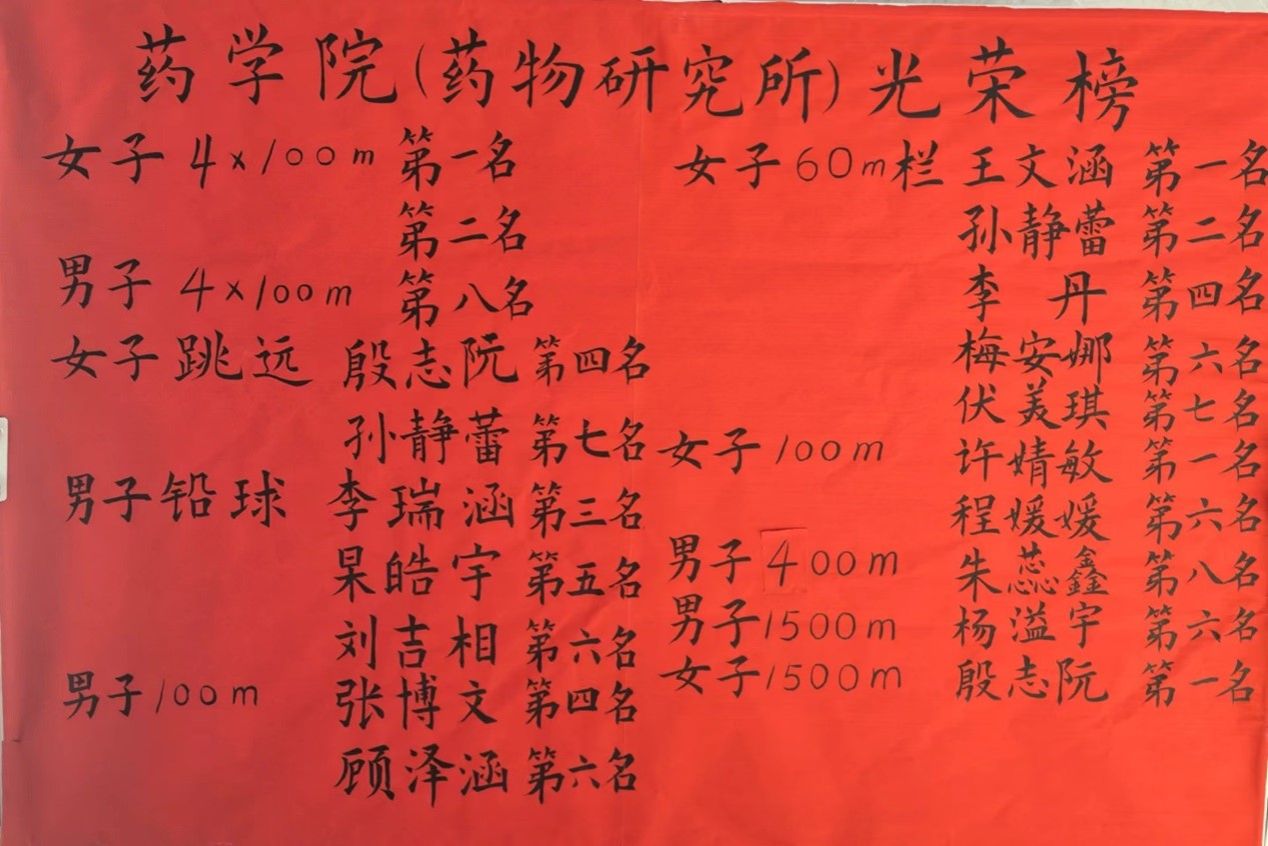 药学院(药物研究所)光荣榜
女子 4×100m 第一名
第二名
男子 4×100m 第八名
女子跳远 殷志阮 第四名
孙静蕾 第七名
男子铅球 李瑞涵 第三名
杲皓宇 第五名
刘吉相 第六名
男子100m 张博文 第四名
顾泽涵 第六名
女子60m栏 王文涵 第一名
孙静蕾 第二名
李丹 第四名
梅安娜 第六名
伏美琪 第七名
女子100m 许婧敏 第一名
程媛媛 第六名
男子400m 朱蕊鑫 第八名
男子1500m 杨溢宇 第六名
女子1500m 殷志阮 第一名